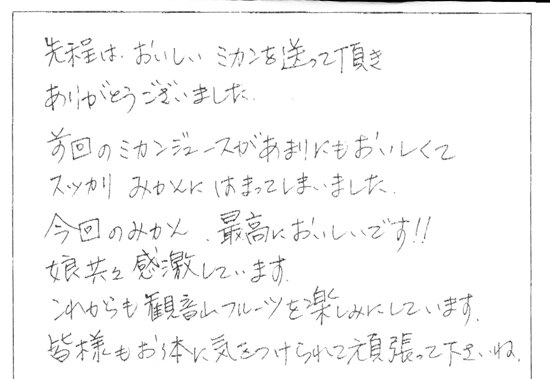 先程は、おいしい ミカンを送って頂き
ありがとうございました。
前回のミカンジュースがあまりにもおいしくて
スッカリ みかんに はまってしまいました。
今回のみかん、最高においしいです!!
娘共々感激しています。
これからも観音山フルーツを楽しみにしています。
皆様もお体に気をつけられて頑張って下さいね。